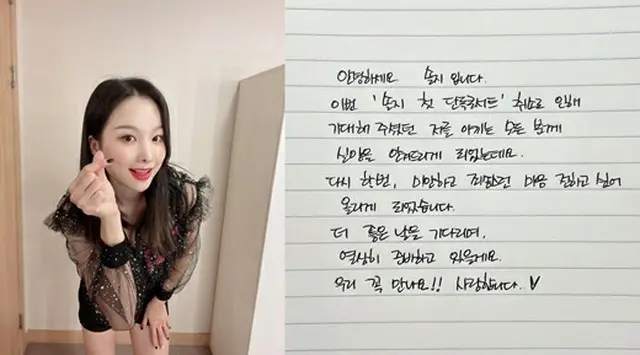 안녕하세요 솔지 입니다.
이번 '솔지 첫 단독콘서트' 취소로 인해
기대해 주셨던 저를 아끼는 모든 분께
실망을 안겨드리게 되었는데요.
다시 한번, 미안하고 죄송했던 마음 전하고 싶어
올리게 되었습니다.
더 좋은 날을 기다리며,
열심히 준비하고 있을게요.
우리 꼭 만나요!! 사랑합니다.♥